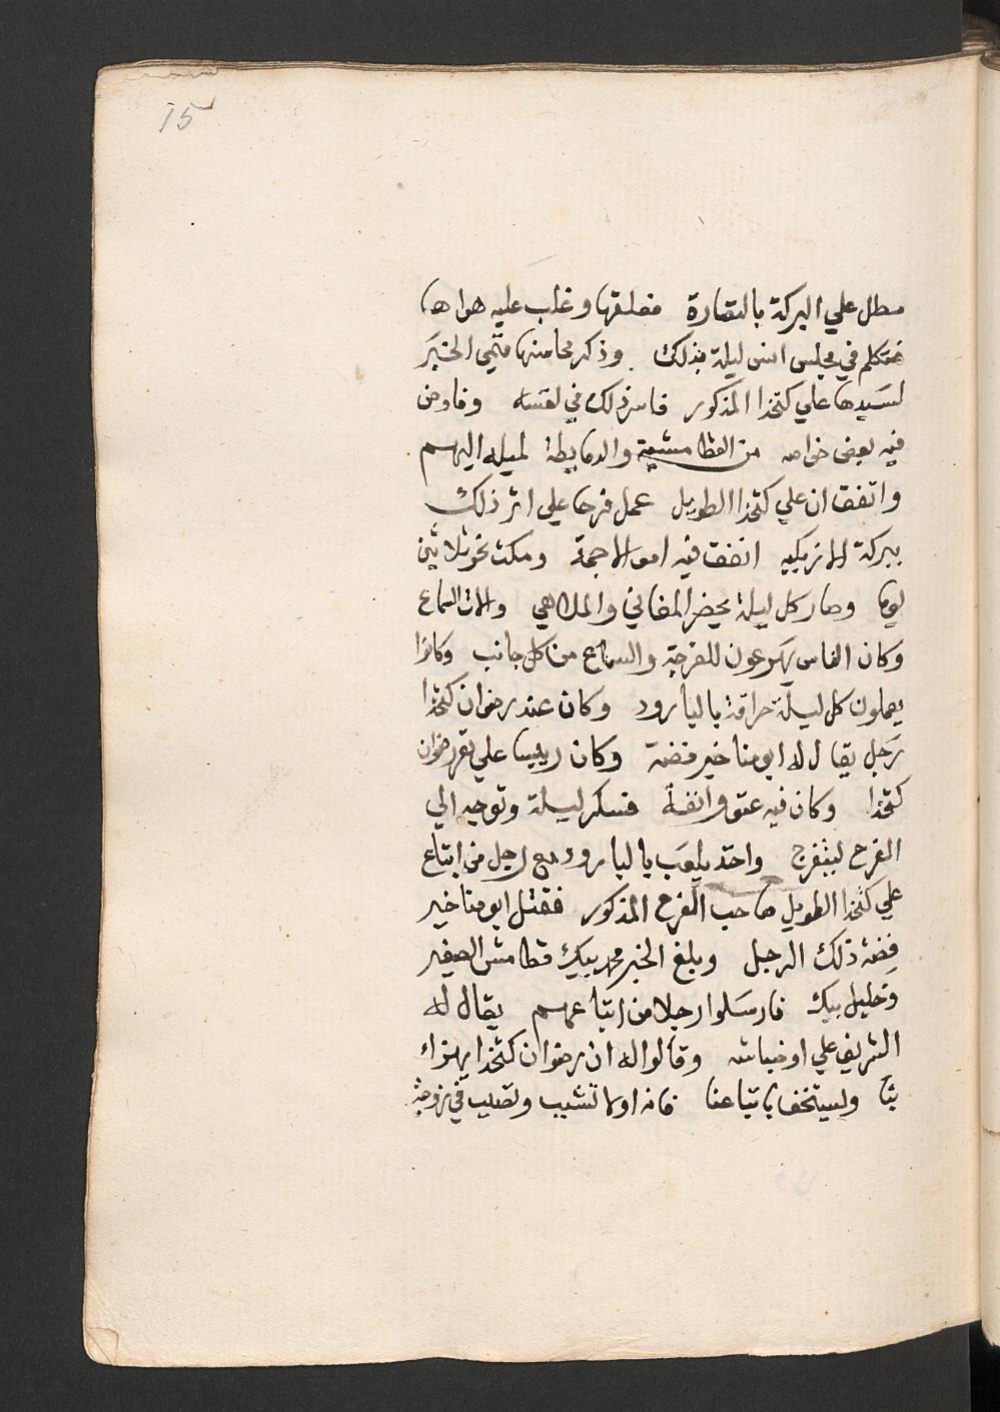 15
مطل علي البركة بالنصارة فعلقها وغلب عليه هواها
فتكلم في مجلس انس ليلة بذلك وذكر محاسنها فنمي الخبَر
لسَيدها علي كتخدا المذكور فاسر ذلك في نفسه وفاوض
فيه بعض خواصه من القطامشية والدمايطة لميله اليهم
واتفق ان علي كتخدا الطويل عمل فرحا علي اثر ذلك
ببركة الازبكيه انفق فيه اموالا جمة ومكث نحو ثلاثين
يوما وصار كل ليلة يحضر المغاني والملاهي والات السماع
وكان الناس يهَرعون للفرجة والسماع من كل جانب وكانوا
يعملون كل ليلة حراقة بالبارود وكان عند رضوان كتخدا
رَجل يقال له ابو مناخير فضة وكان رييسا علي بقر رضوان
كتخدا وكان فيه عتو وانفة فسكر ليلة وتوجه الي
الفرح ليتفرج واخد يلعَب بالبارود مع رجل من اتباع
علي كتخدا الطويل صاحب الفرح المذكور فقتل ابو مناخير
فِضة ذلك الرجل وبلغ الخبر محمد بيك قطامش الصغير
وَخليل بيك فارسَلوا رجلا من اتباعهم يقال له
الشريف علي اوضباشه وقالوا له ان رضوان كتخدا يهزاء
بنا ويستخف باتباعنا فانه اولا تشبب وتصبب في زوجة